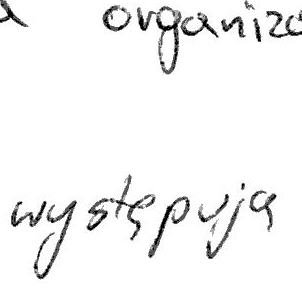 a organizo
występują